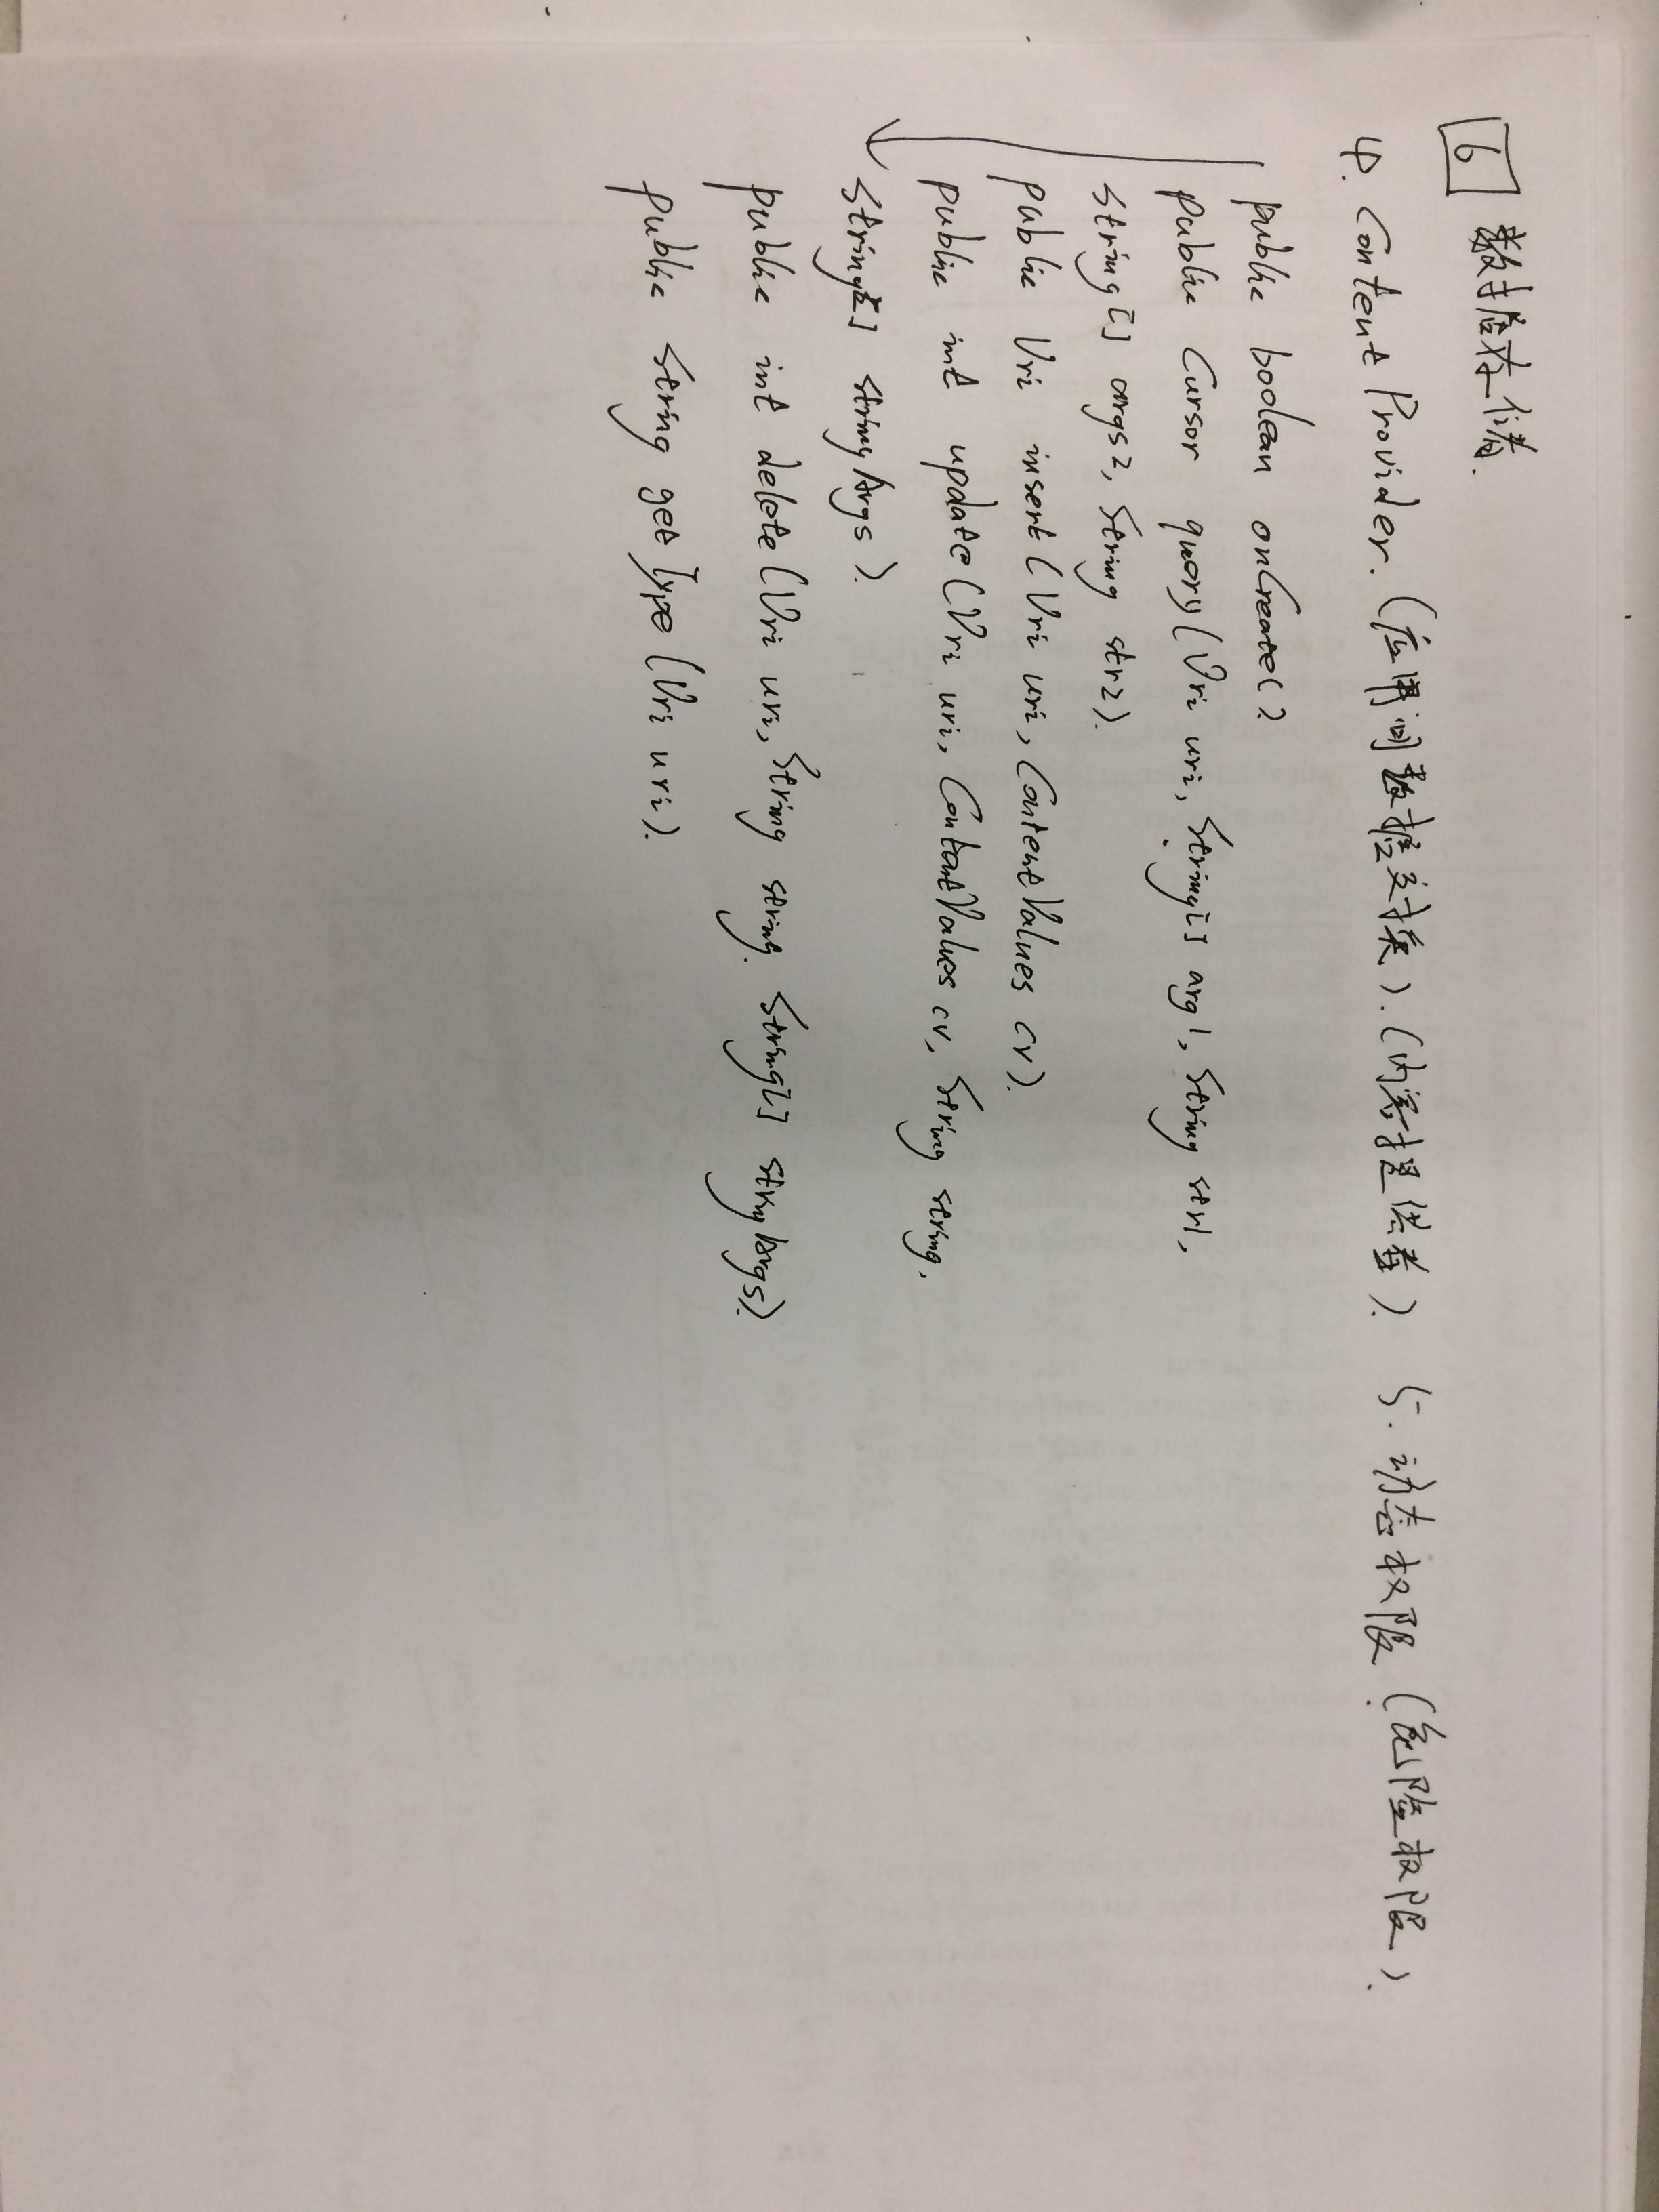 6 数据存储.
4. Content Provider. (应用间数据交换). (内容提供者). 5. 动态权限 (危险权限).
public boolean onCreate()
public Cursor query(Uri uri, String[] arg1, String str1,
String[] args2, String str2).
public Uri insert(Uri uri, ContentValues cv).
public int update(Uri uri, ContentValues cv, String string,
String[] stringArgs).
public int delete(Uri uri, String string, String[] stringArgs).
public String getType(Uri uri).